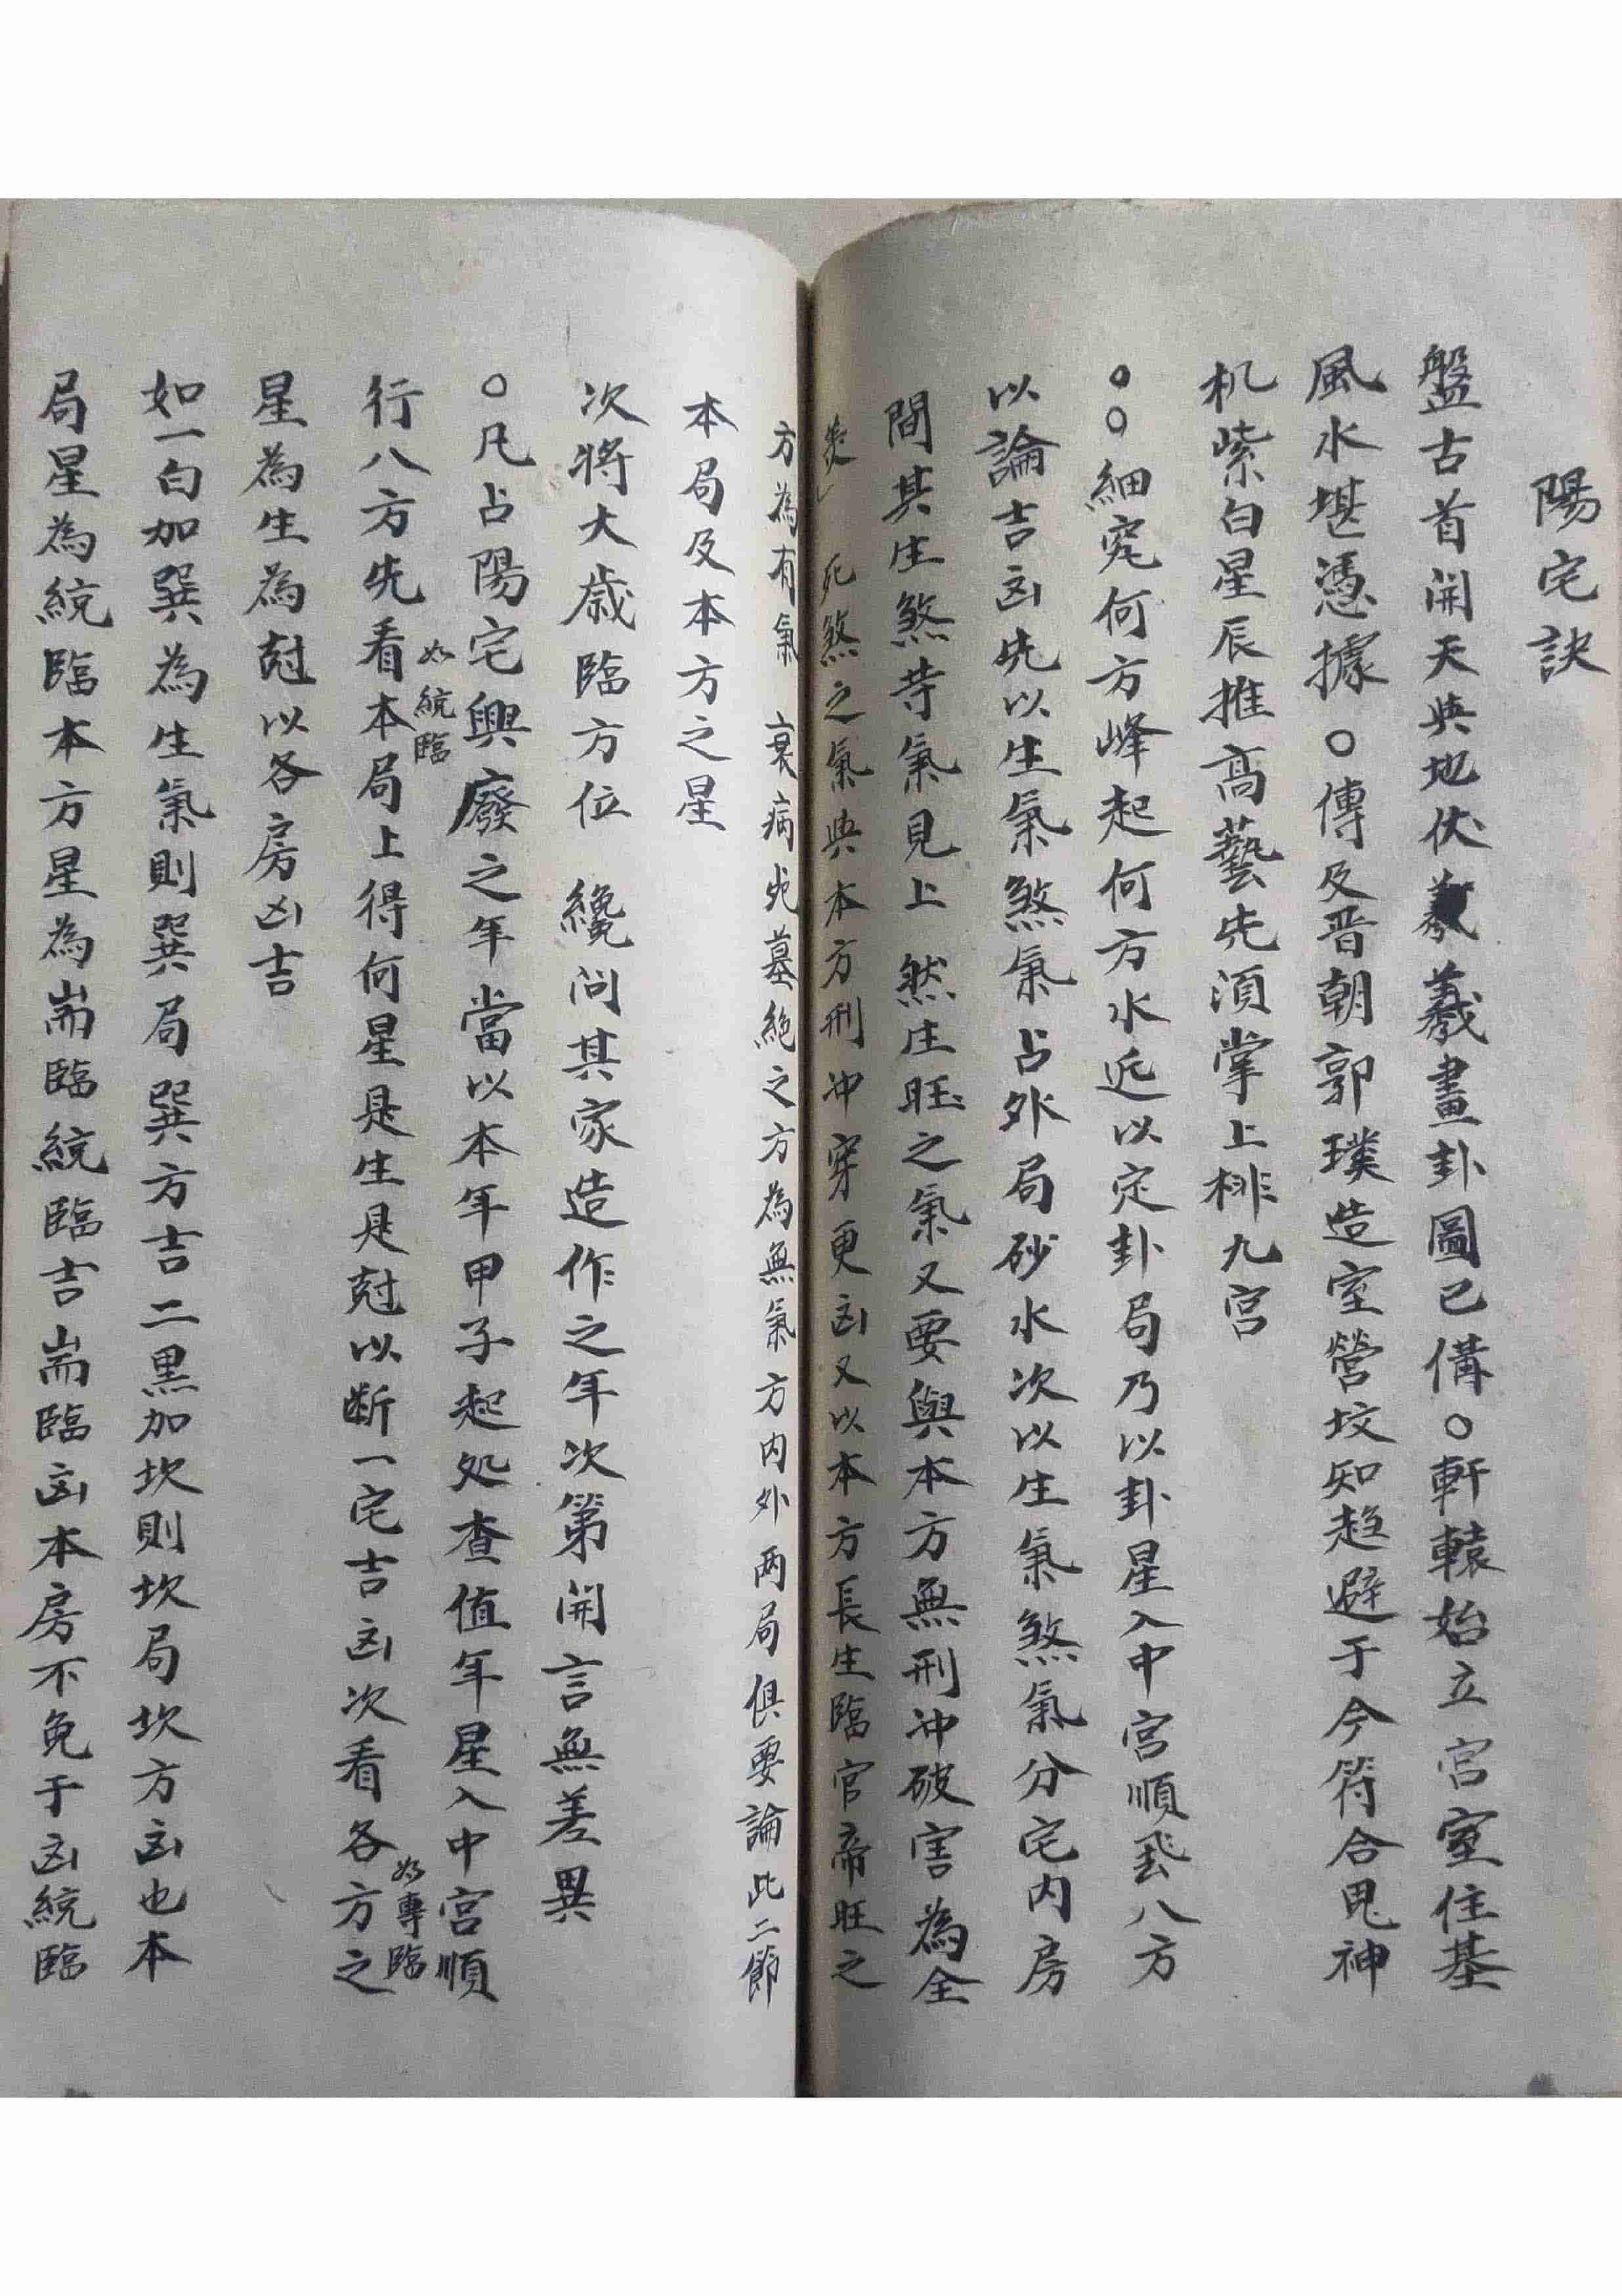 陽宅訣
盤古首開天與地伏羲羲畫卦圖已俻○軒轅始立宮室住基
風水堪憑據○傳及晋朝郭璞造室營坟知趋避于今符合鬼神
机紫白星辰推高藝先湏掌上排九宮
○○細究何方峰起何方水近以定卦局乃以卦星入中宮順飛八方
以論吉凶先以生氣煞氣占外局砂水次以生氣煞氣分宅内房
間其生煞等氣見上 然生旺之氣又要與本方無刑冲破害為全
美 死煞之氣與本方刑冲穿更凶又以本方長生臨官帝旺之
方為有氣 衰病死墓絕之方為無氣方内外两局俱要論此二節
本局及本方之星
次將大歲臨方位 纔问其家造作之年次第開言無差異
○凡占陽宅興廢之年當以本年甲子起処查值年星入中宮順
行八方先看本局上得何星是生是尅以断一宅吉凶次看各方之
如統臨
如專臨
星為生為尅以各房凶吉
如一白加巽為生氣則巽局巽方吉二黒加坎則坎局坎方凶也本
局星為統臨本方星為耑臨統臨吉耑臨凶本房不免于凶統臨